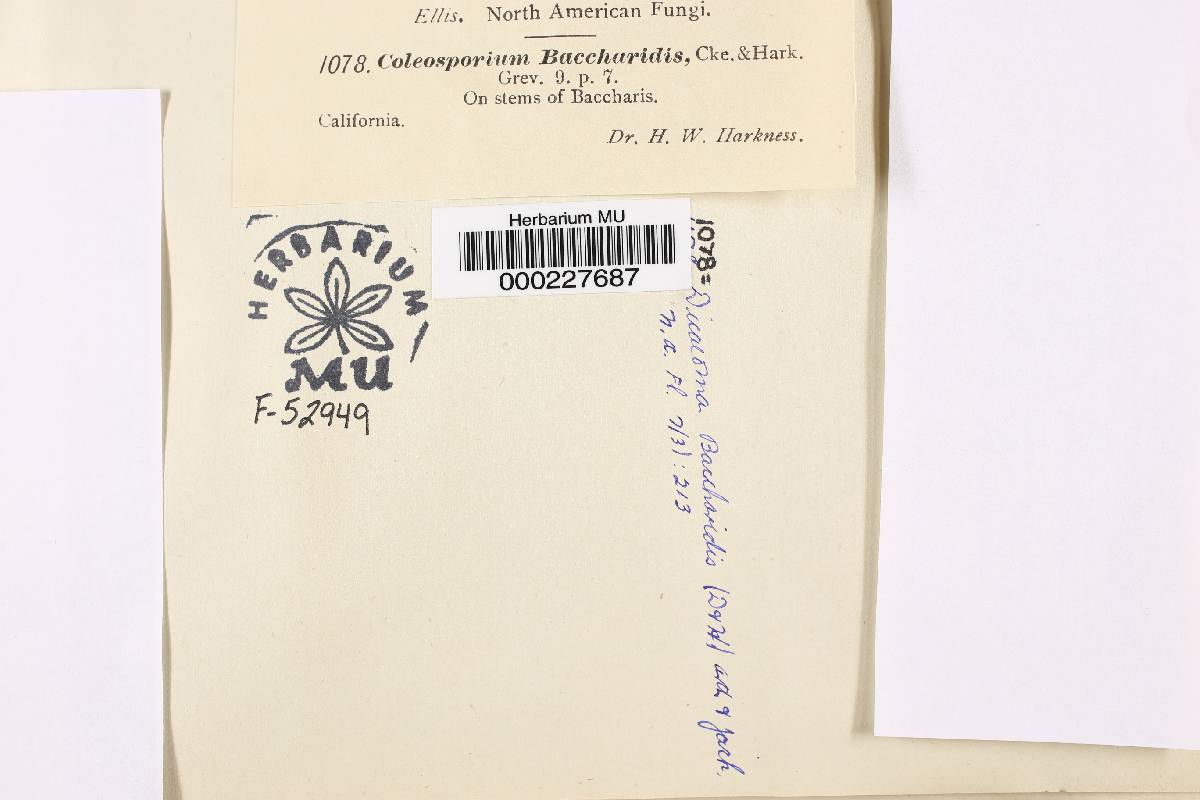 Ellis. North American Fungi.
1078. Coleosporium Baccharidis, Cke. & Hark.
Grev. 9. p. 7.
On stems of Baccharis.
California.
Dr. H. W. Harkness.
HERBARIUM
MU
F-52949
Herbarium MU
000227687
1078= Dicaeoma Baccharidis (D&H) arth & Jack.
N. a. Fl. 7(3):213